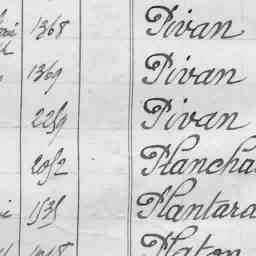 1368 Pivan
1369 Pivan
2259 Pivan
2052 Plancha
1535 Plantara
Platon